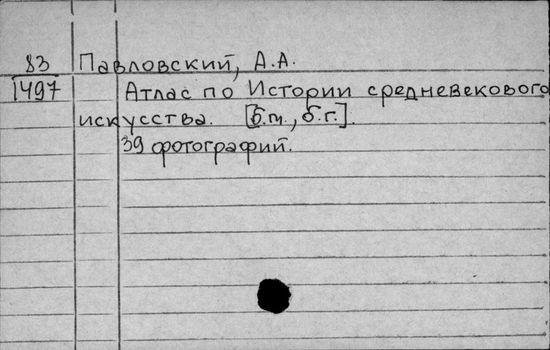 83 Павловский, А.А.
1497 Атлас по Истории средневекового
искусства. [б.м., б.г.].
39 фотографий.